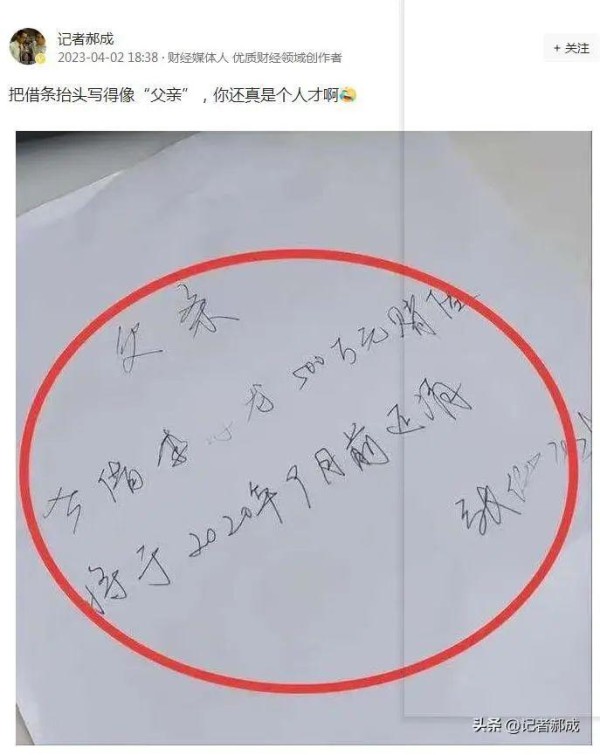 记者郝成
2023-04-02 18:38 · 财经媒体人 优质财经领域创作者
+ 关注
把借条抬头写得像“父亲”，你还真是个人才啊🤣
父亲
借李 500万元赌
将于2020年9月前还清
头条 @记者郝成